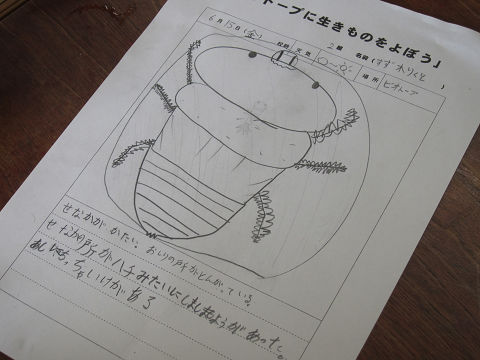 トープに生きものをよぼう」
6月15日(金) 校時 天気 2組 名前(すずきりくと)
場所 ビオトープ
せなかが かたい。おしりの所がとんがっている。
せなかの所がハチみたいにしましまもようがあった。
あしに ちゃいろいけがある